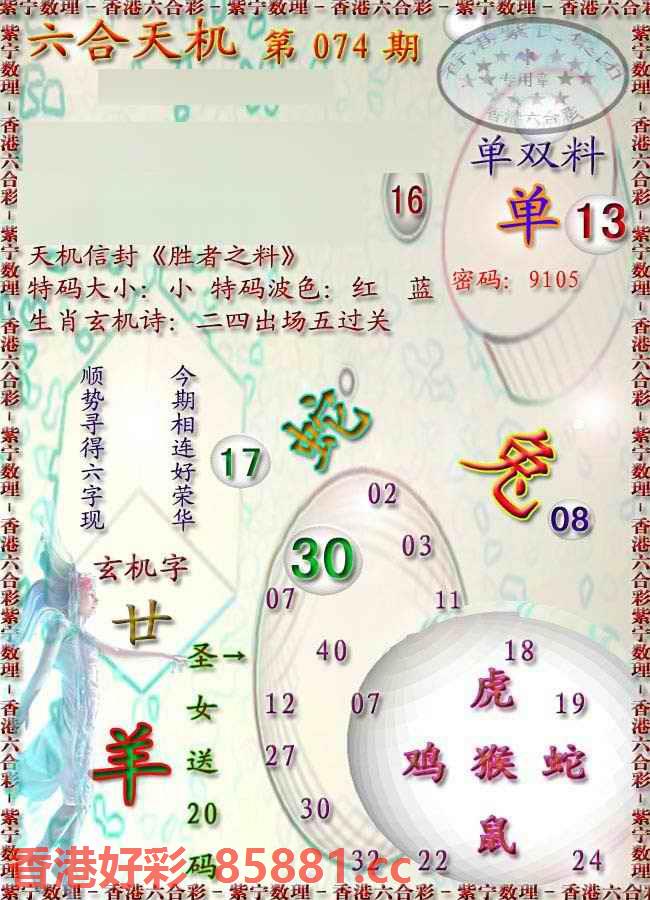 紫宁数理－香港六合彩－紫宁数理－香港六合彩－紫宁数理－香港六合彩
六合天机 第 074 期
专用章
香港六合彩
单双料
单 13
16
天机信封《胜者之料》
特码大小：小 特码波色：红 蓝
密码：9105
生肖玄机诗：二四出场五过关
今期相连好荣华
顺势寻得六字现
蛇
17
兔
08
02
30
03
玄机字
廿
07
11
圣女送20码
→
40
18
虎
12
07
19
羊
27
鸡 猴 蛇
30
鼠
32
22
24
香港好彩 85881.cc
紫宁数理－香港六合彩－紫宁数理－香港六合彩－紫宁数理